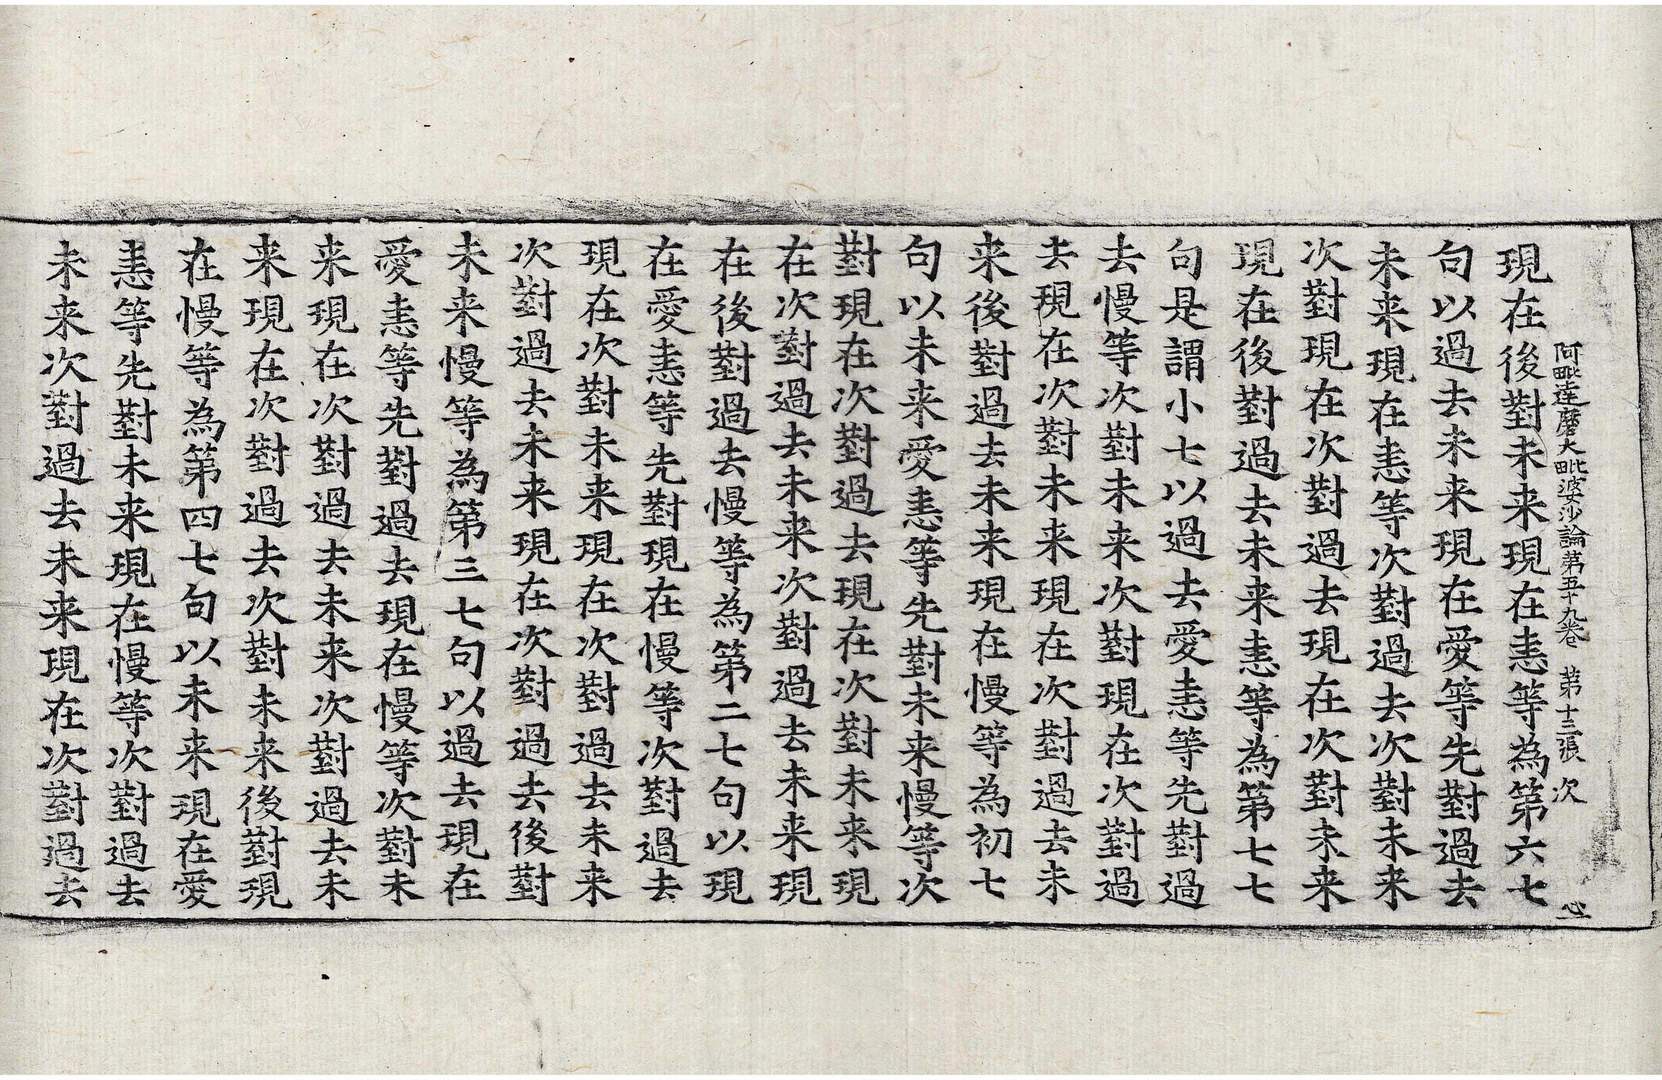 阿毗達磨大毗婆沙論第五十九卷 第十三張 次
現在後對未来現在恚等為第六七
句以過去未来現在愛等先對過去
未来現在恚等次對過去次對未来
次對現在次對過去現在次對未来
現在後對過去未来恚等為第七七
句是謂小七以過去愛恚等先對過
去慢等次對未来次對現在次對過
去現在次對未来現在次對過去未
来後對過去未来現在慢等為初七
句以未来愛恚等先對未来慢等次
對現在次對過去現在次對未来現
在次對過去未来次對過去未来現
在後對過去慢等為第二七句以現
在愛恚等先對現在慢等次對過去
現在次對未来現在次對過去未来
次對過去未来現在次對過去後對
未来慢等為第三七句以過去現在
愛恚等先對過去現在慢等次對未
来現在次對過去未来次對過去未
来現在次對過去次對未来後對現
在慢等為第四七句以未来現在愛
恚等先對未来現在慢等次對過去
未来次對過去未来現在次對過去